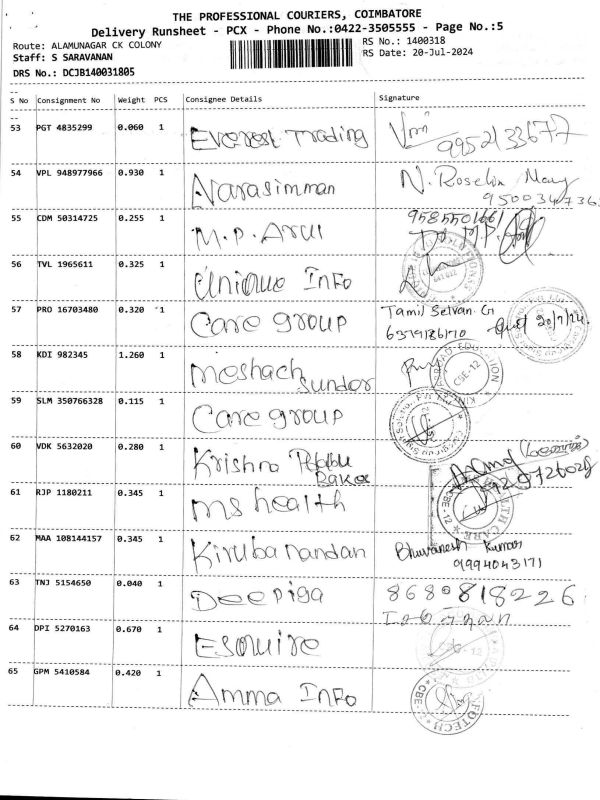 THE PROFESSIONAL COURIERS, COIMBATORE
Delivery Runsheet - PCX - Phone No.:0422-3505555 - Page No.:5
Route: ALAMUNAGAR CK COLONY
RS No.: 1400318
Staff: S SARAVANAN
RS Date: 20-Jul-2024
DRS No.: DCJB140031805
S No Consignment No Weight PCS Consignee Details Signature
53 PGT 4835299 0.060 1 Everest Trading
9952133677
54 VPL 948977966 0.930 1 Narasimman N. Roselin Mary
950034736
55 CDM 50314725 0.255 1 M.P. Arul
56 TVL 1965611 0.325 1 Unique Info
57 PRO 16703480 0.320 1 Care group Tamil Selvan. G
6379186170 20/7/24
58 KDI 982345 1.260 1 Meshach Sundar
CSE-12
59 SLM 350766328 0.115 1 Care group
60 VDK 5632020 0.280 1 Krishna
61 RJP 1180211 0.345 1 ms health
62 MAA 108144157 0.345 1 Kirubanandan Bhuvanesh Kumar
9994043171
63 TNJ 5154650 0.040 1 Deepiga 8680818226
64 DPI 5270163 0.670 1 Esquire
65 GPM 5410584 0.420 1 Amma Info